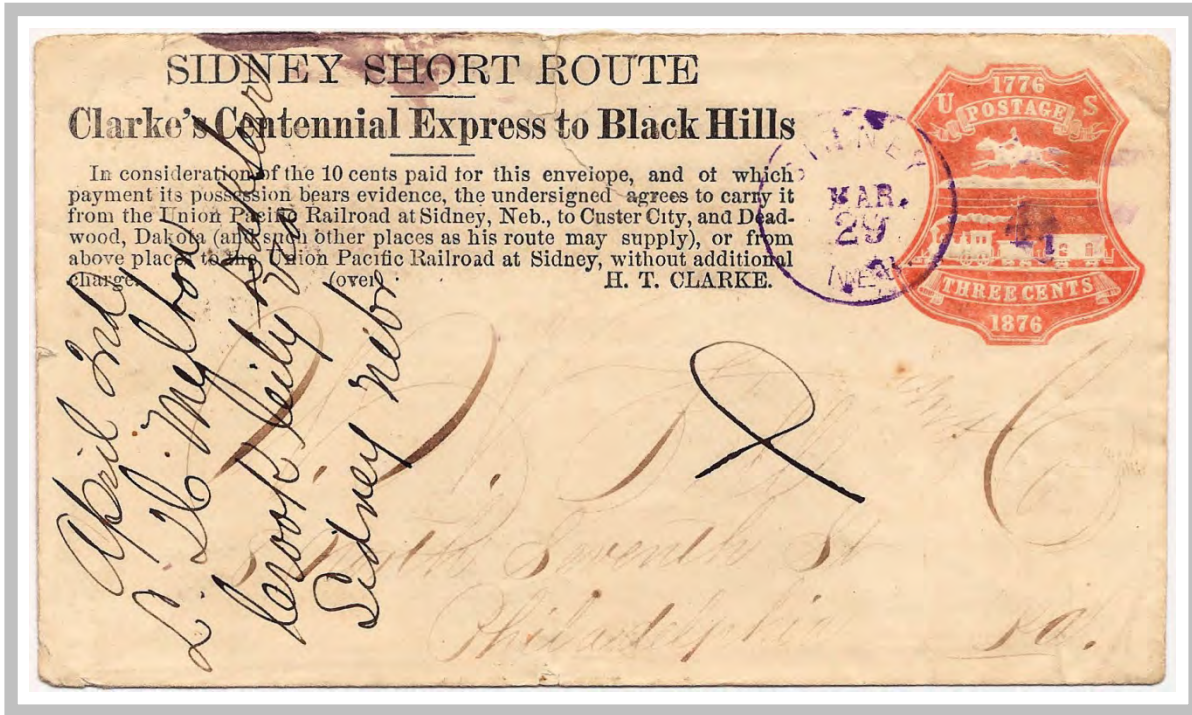 SIDNEY SHORT ROUTE
Clarke's Centennial Express to Black Hills
In consideration of the 10 cents paid for this envelope, and of which
payment its possession bears evidence, the undersigned agrees to carry it
from the Union Pacific Railroad at Sidney, Neb., to Custer City, and Dead-
wood, Dakota (and such other places as his route may supply), or from
above places to the Union Pacific Railroad at Sidney, without additional
charge. (over) H. T. CLARKE.
1776
U POSTAGE S
THREE CENTS
1876
SIDNEY
MAR.
29
NEB.
April
L. H.
Sidney Nebr
Seventh St
Philadelphia
Pa.